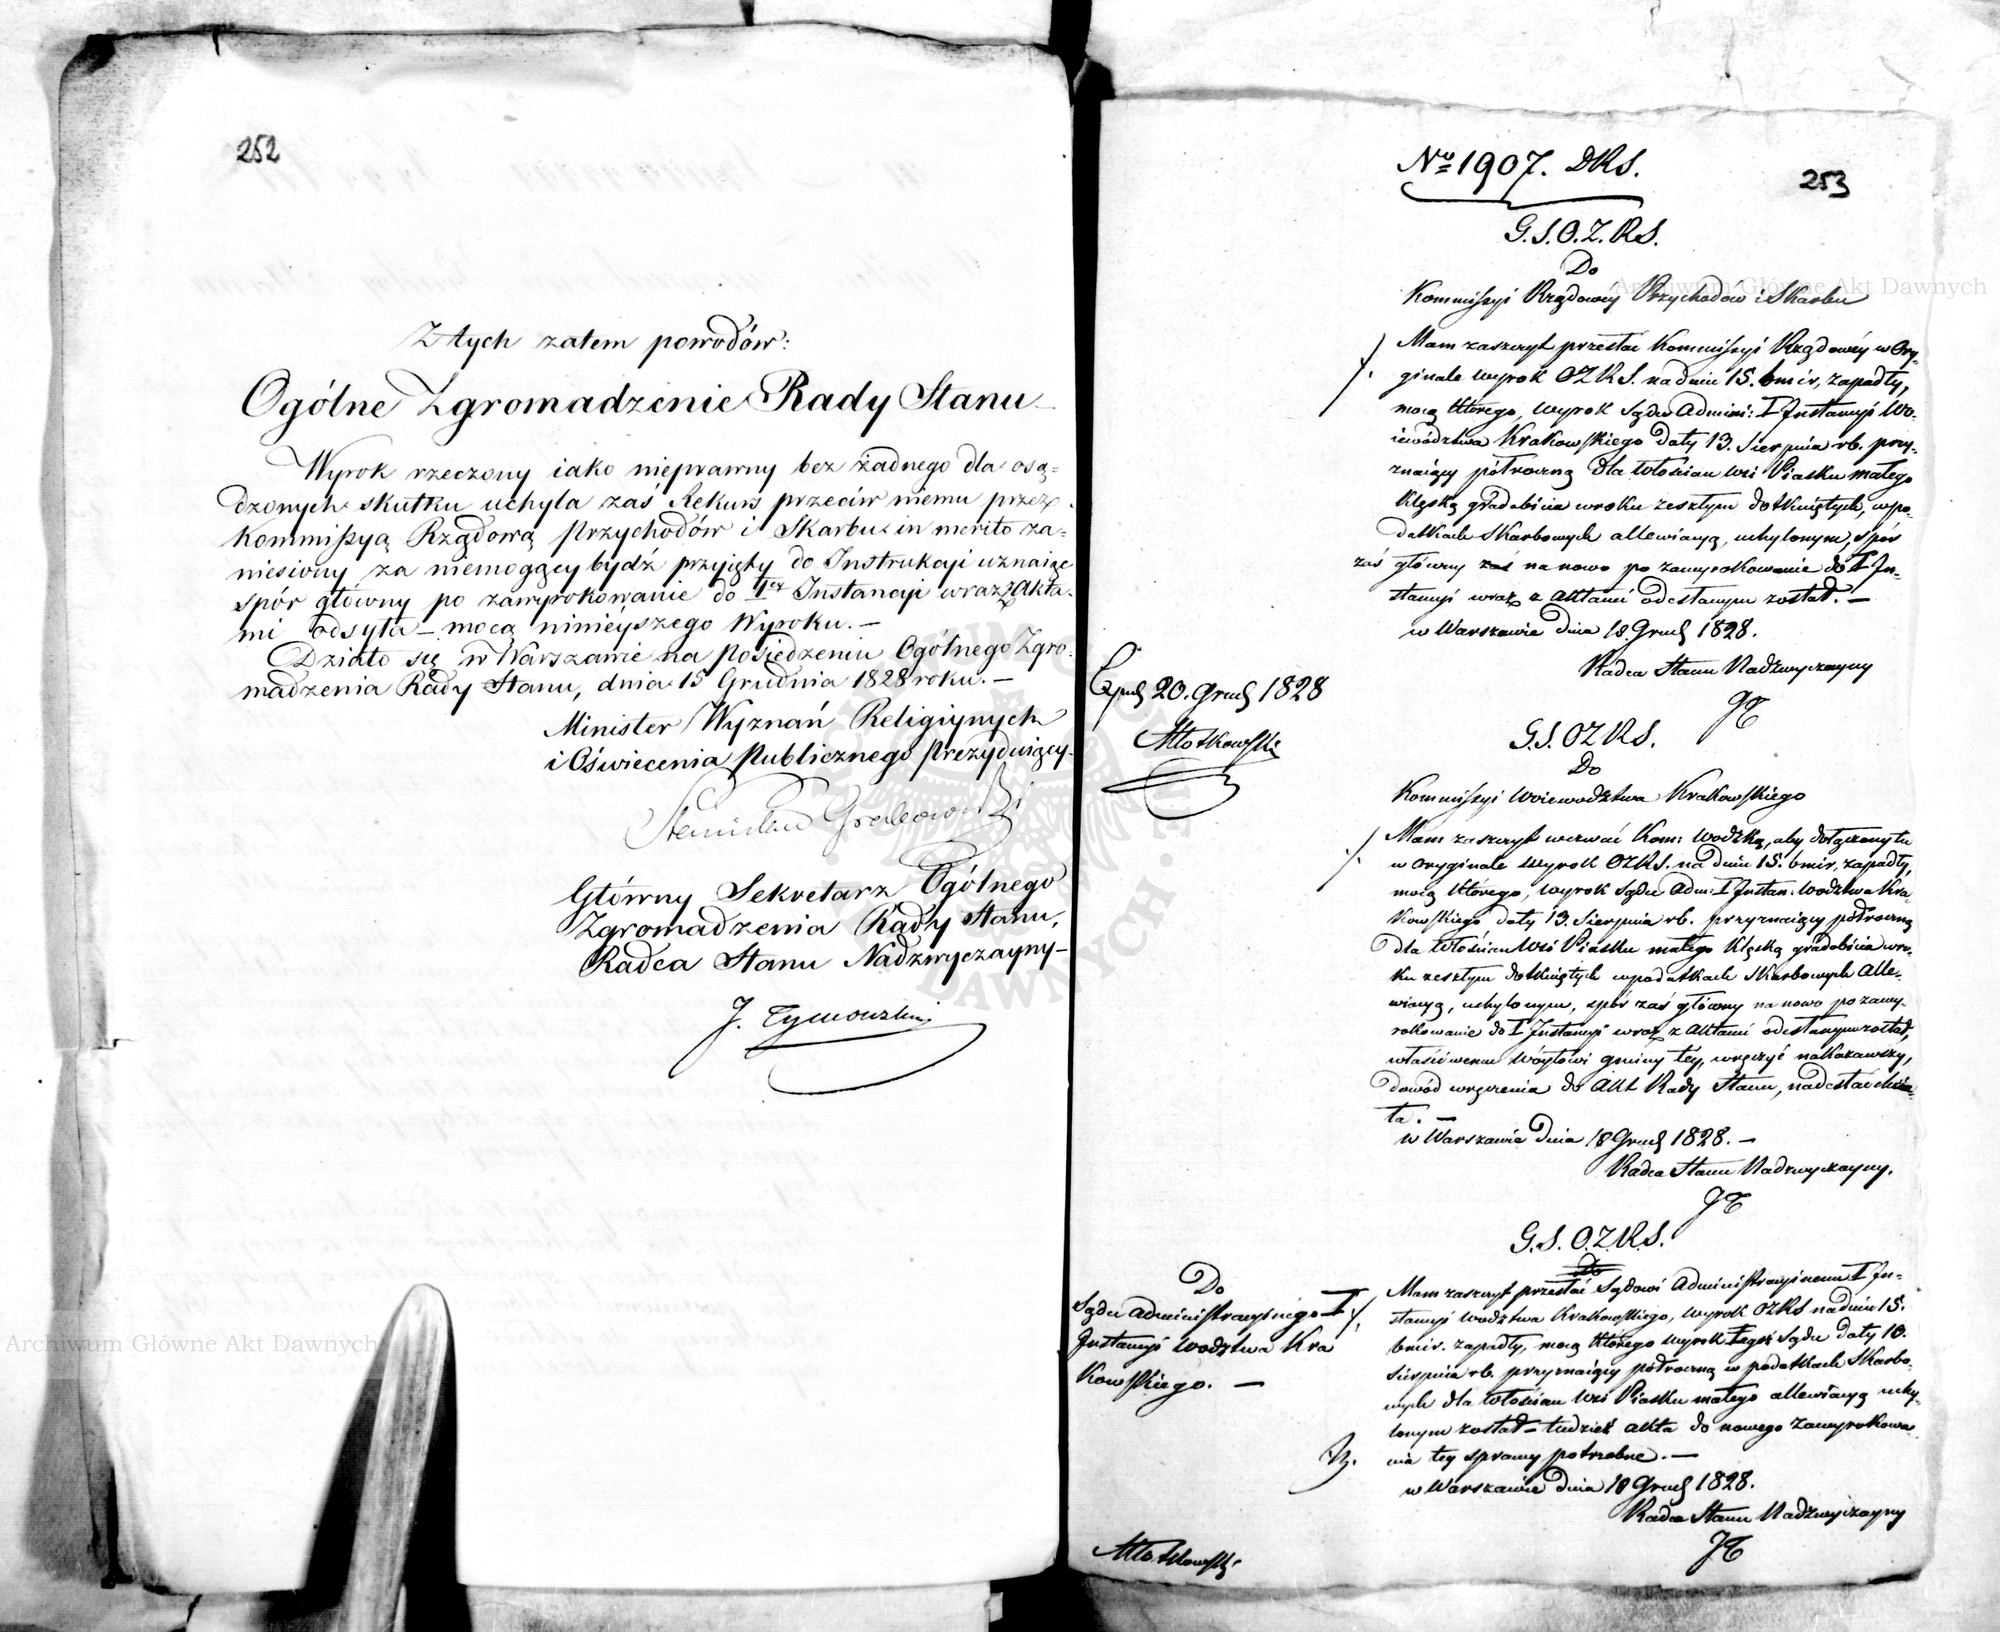 252
Z tych zatem powodów:
Ogólne Zgromadzenie Rady Stanu
Wyrok rzeczony iako nieprawny bez żadnego dla osą=
dzonych skutku uchyla zaś Rekurs przeciw niemu przez
Kommissyą Rządową Przychodów i Skarbu in merito za=
niesiony za niemogący bydź przyięty do Instrukcyi uznaiąc
spór główny po zawyrokowanie do Iey Instancyi wraz z Akta=
mi odsyła – mocą ninieyszego Wyroku. –
Działo się w Warszawie na Posiedzeniu Ogólnego Zgro=
madzenia Rady Stanu, dnia 15 Grudnia 1828 roku. –
Minister Wyznań Religiynych
i Oświecenia Publicznego Prezyduiący
Stanisław Grabowski
Główny Sekretarz Ogólnego
Zgromadzenia Rady Stanu,
Radca Stanu Nadzwyczayny –
J. Tymowski
253
No 1907. DRS.
G.S.O.Z.RS.
Do
Kommissyi Rządowey Przychodow i Skarbu
Mam zaszczyt przesłać Kommissyi Rządowéy w Ory-
ginale wyrok OZRS. na dniu 15. bmir, zapadły,
mocą którego, wyrok Sądu Admini: I Instancyi Wo-
iewództwa Krakowskiego daty 13. Sierpnia rb. przy-
znaiący półroczną dla Włościan wsi Piasku małego
klęską gradobicia w roku zeszłym dotkniętych, w po-
datkach Skarbowych allewiacyą, uchylonym, spór
zaś główny zaś na nowo po zawyrokowanie do I In-
stancyi wraz z Aktami odesłanym został. –
w Warszawie dnia 18 Grud 1828.
Radca Stanu Nadzwyczayny
JT
Exped 20. Grud 1828
Młotkowski
G.S. OZRS.
Do
Kommissyi Woiewodztwa Krakowskiego
Mam zaszczyt wezwać Kom: Wodzką, aby dołączony tu
w oryginale wyrok OZRS. na dniu 15. bmir, zapadły,
mocą którego, wyrok Sądu Adm: I Instan. Wodztwa Kra-
kowskiego daty 13. Sierpnia rb. przyznaiący półroczną
dla Włościan wsi Piasku małego klęską gradobicia w ro-
ku zeszłym dotkniętych w podatkach Skarbowych Alle-
wiacyą, uchylonym, spór zaś główny na nowo po zawy-
rokowanie do I Instancyi wraz z Aktami odesłanym został,
właściwemu Wóytowi gminy téy, wręczyć nakazawszy,
dowód wręczenia do Akt Rady Stanu, nadesłać chcia-
ła. –
w Warszawie dnia 18 Grud 1828. –
Radca Stanu Nadzwyczayny.
JT
G.S. O.Z.R.S.
Do
Do
Sądu Administracyinego I
Instancyi Wodztwa Kra
kowskiego. –
Mam zaszczyt przesłać Sądowi Administracyinemu I In-
stancyi Wodztwa Krakowskiego, wyrok OZRS na dniu 15.
bmir. zapadły, mocą którego wyrok tegoż Sądu daty 13.
Sierpnia rb. przyznaiący półroczną w podatkach Skarbo-
wych dla Włościan wsi Piasku małego allewiacyą uchy-
lonym został – tudzież akta do nowego zawyrokowa-
nia tey sprawy potrzebne. –
w Warszawie dnia 18 Grud 1828.
Radca Stanu Nadzwyczayny
JT
Młotkowski
Archiwum Główne Akt Dawnych
Archiwum Główne Akt Dawnych